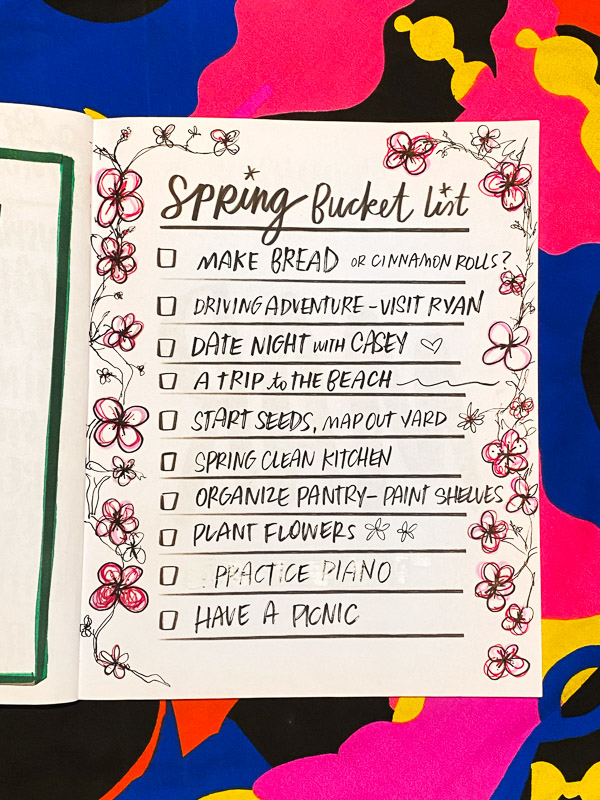 SPRING Bucket List
MAKE BREAD OR CINNAMON ROLLS?
DRIVING ADVENTURE - VISIT RYAN
DATE NIGHT with CASEY ♡
A TRIP to THE BEACH
START SEEDS, MAP OUT YARD
SPRING CLEAN KITCHEN
ORGANIZE PANTRY - PAINT SHELVES
PLANT FLOWERS
PRACTICE PIANO
HAVE A PICNIC